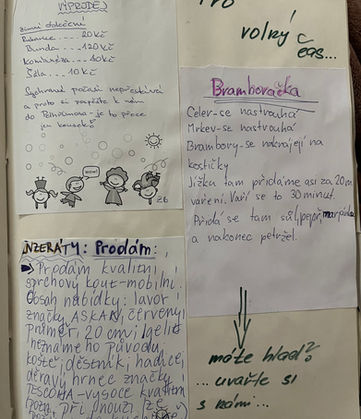 VÝPRODEJ
zimní oblečení
Rukavice .... 20Kč
Bunda ..... 120Kč
Kombinéza ... 80Kč
Šála .... 10Kč
a proto si zajděte k nám
do - je to přece
26
Pro
volný
čas...
Bramboračka
Celer-se nastrouhá
Mrkev-se nastrouhá
Brambory-se nakrájejí na
kostičky
Jíšku tam přidáme asi za 20m
váření. Vaří se to 30 minut.
Přidá se tam sůl, pepř,
a nakonec petržel.
INZERÁTY: Prodám:
Prodám kvalitní
sprchový kout-mobilní.
Obsah nabídky: lavor
značky ASKAN, červený
průměr, 20 cm, igelit
neznámého původu,
koště, deštník, hadice,
děravý hrnec značky
TESCOMA-vysoce kvalitní
při nouzi lze
máte hlad?
... uvařte si
s námi...